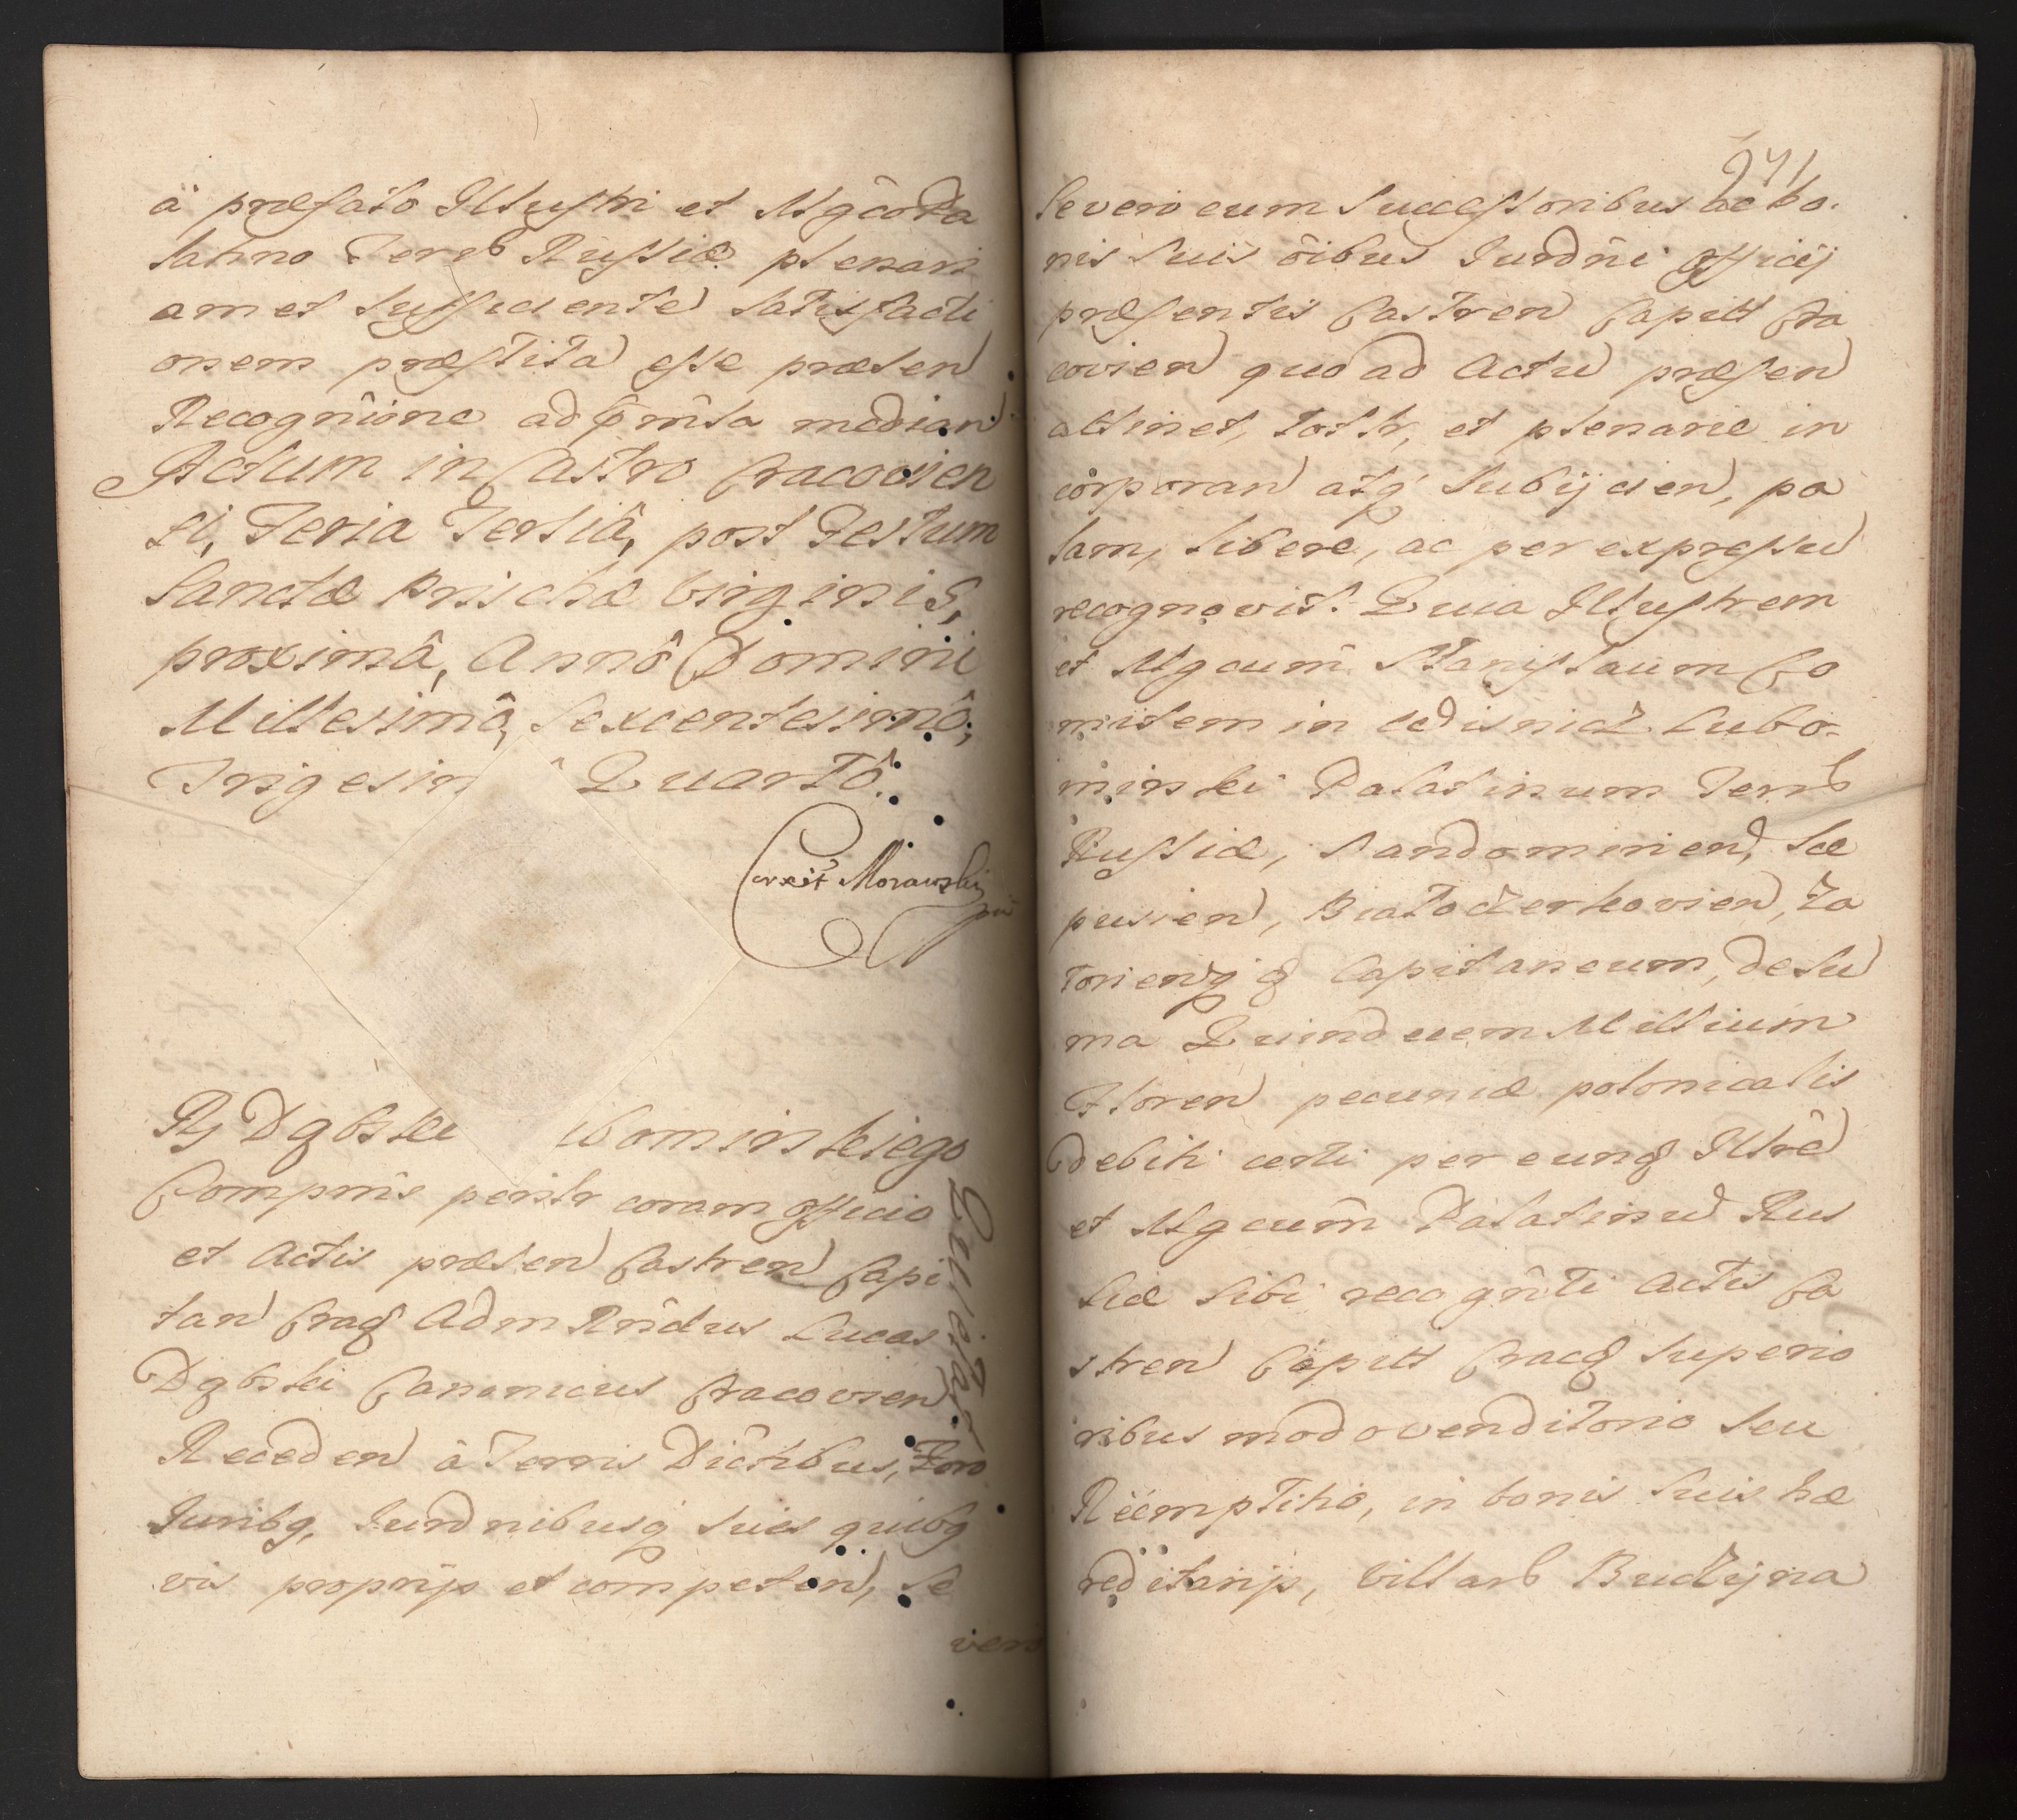 à præfato Illustri et Mgco Pa
latino Terrs Russiæ plenari
am et sufficiente satisfacti
onem præstita esse præsen
Recognîone ad pmîssa median
Actum in Castro Cracovien
si, Feria Tertiâ, post Festum
Sanctæ Priscæ Virginis,
proximâ, Annô Domini
Millesimô, Sexcentesimô,
Trigesim Quartô.
Corexit Morawski
mp
Rg Dąbski ibomirskiego
Comprns persltr coram officio
et Actis præsen Castren Capi
tan Crac Adm Rñdus Lucas
Dąbski Canonicus Cracovien
Receden à Terris Dictibus, Foro
Juribq, Jurdnibusq suis quibq
vis proprijs et competen, se
vero
Quietat
241
se vero cum successoribus ac bo-
nis suis ôibus Jurdñi Officij
præsentis Castren Capitt Cra
covien quo ad Actu præsen
attinet, totltr, et plenarie in
corporan atq subijcien, pa
lam, libere, ac per expressu
recognovit. Quia Illustrem
et Mgcum Stanislaum Co
mitem in Wisnicz Lubo-
mirski Palatinum Terrs
Russiæ, Sandomirien, Sce
pusien, Białoczerkovien, Za
torienq Capitaneum, de su
ma Quindecem Millium
Floren pecuniæ polonicalis
debiti certi per eund Illtrê
et Mgcum Palatinu Rus
siæ sibi recogniti Actis Ca
stren Capitt Crac superio
ribus modo venditorio seu
Reemptitio, in bonis suis hæ
reditarijs, Villars Budzyna